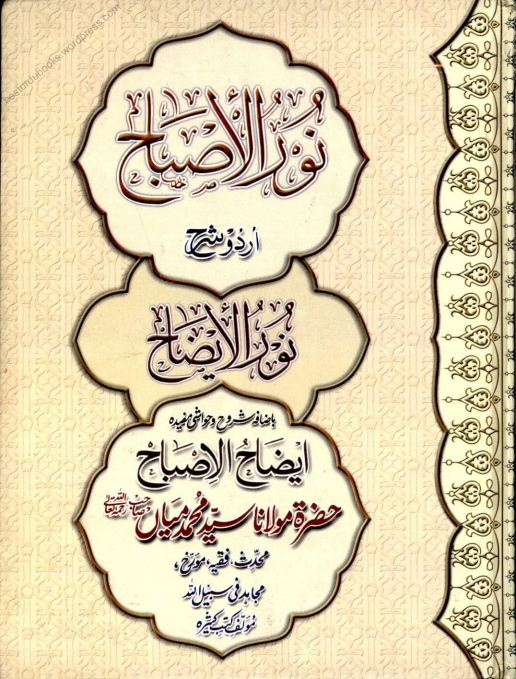 besturdubooks.wordpress.com
نُورُ الْأَصْبَاح
اُردُو شرح
نُورُ الْأَيْضَاح
باضافہ شروح و حواشی مفیدہ
ایضَاحُ الاِصبَاح
حضرة مولانا سیّد محمد میاں صاحب رحمہ اللہ تعالیٰ
محدّث، فقیہ، مؤرخ،
مجاہد فی سبیل اللہ
مؤلف کتب کثیرہ